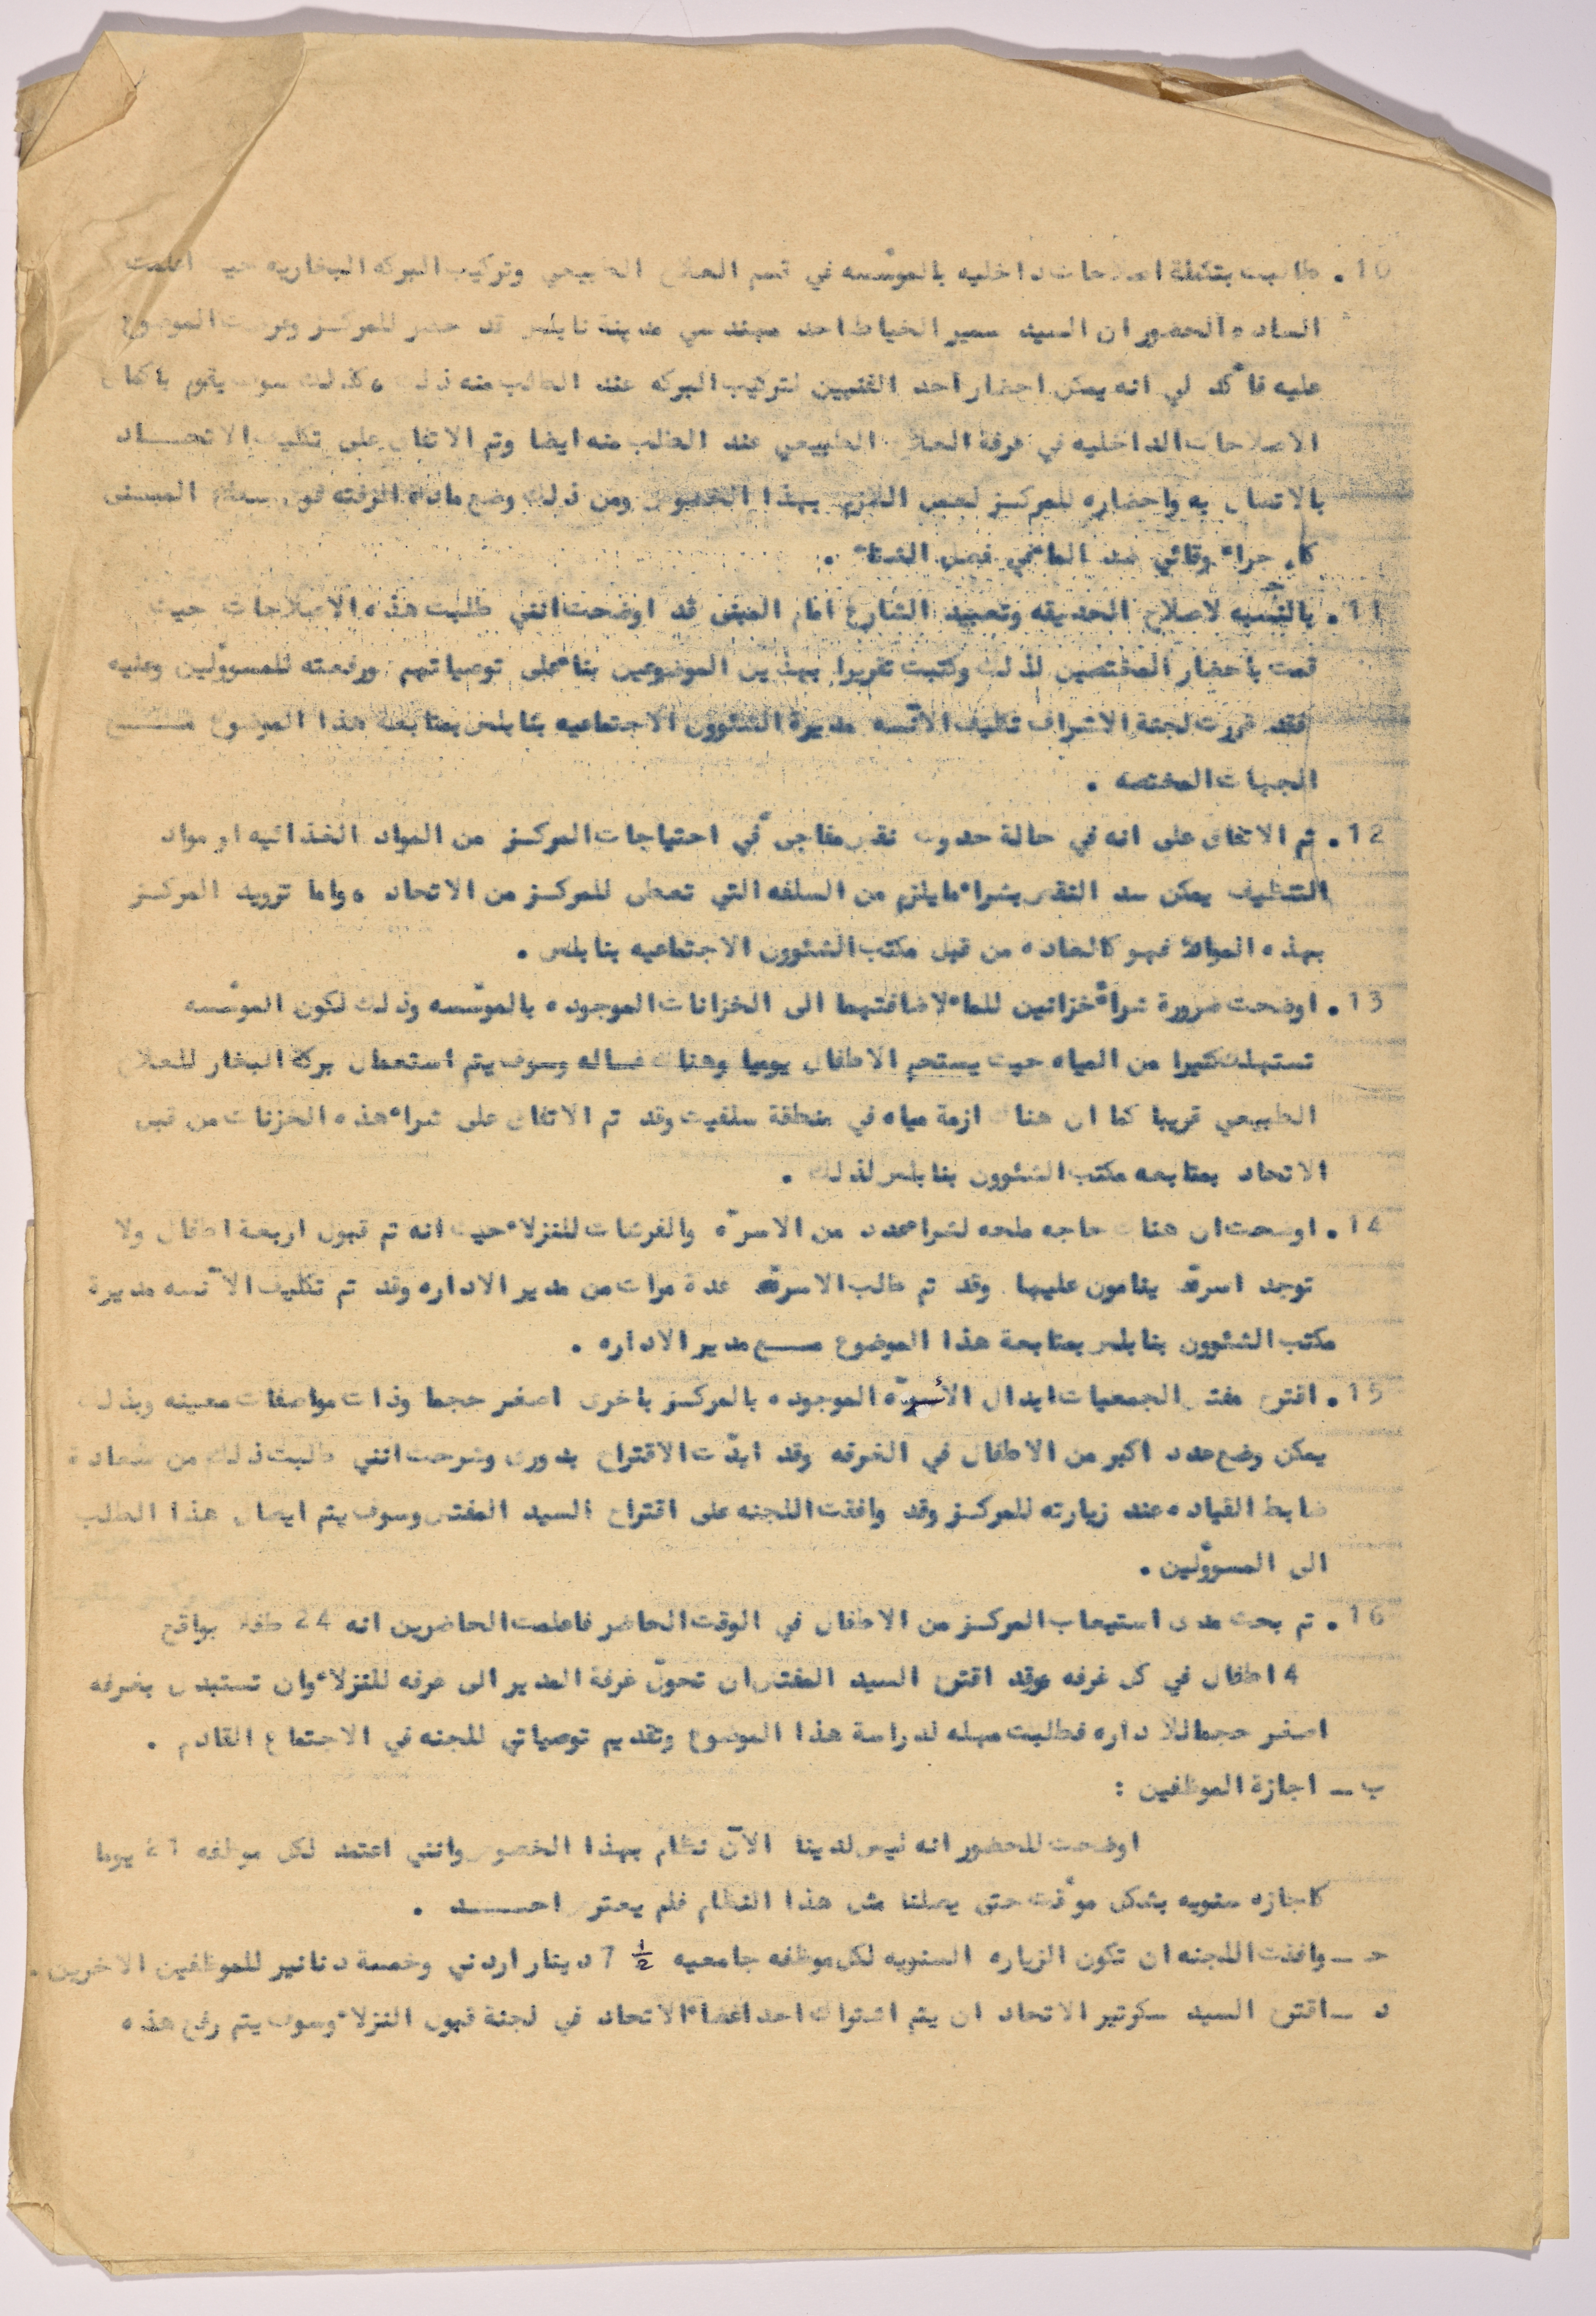 10. طالبت بتكملة اصلاحات داخليه بالموسّسه في قسم العلاج الطبيعي وتركيب البركه البخاريه حيث اعلمت
الساده الحضور ان السيد سمير الخياط احد مهندسي مدينة نابلس قد حضر للمركـز وعرضت الموضوع
عليه فأكد لي انه يمكن احضار احد الفنيين لتركيب البركه عند الطلب منه ذلك ، كذلك سوف يقوم
الاصلاحات الداخليه في غرفة العلاج الطبيعي عند الطلب منه ايضا وتم الاتفاق على تكليف الاتحــاد
بالاتصال به واحضاره للمركـز لعمل اللازم بهذا الخصوص ومن ذلك وضع مادة الزفته فوق سطح المبنى
وقائي ضد الماء في فصل الشتاء .
11. بالنسبه لاصلاح الحديقه وتعبيد الشارع امام المبنى قد اوضحت انني طلبت هذه الاصلاحات حيث
قمت باحضار المختصين لذلك وكتبت تقريرا بهذين الموضوعين بناء على توصياتهم ورفعته للمسوولين وعليه
فقد قررت لجنة الاشراف تكليف الآنسه مديرة الشئوون الاجتماعيه بنابلس بمتابعة هذا الموضوع مــع
الجهات المختصه .
12. تم الاتفاق على انه في حالة حدوث نقص مفاجىء في احتياجات المركـز من المواد الغذائيه او مواد
التنظيف يمكن سد النقص بشراء مايلزم من السلفه التي تعطى للمركـز من الاتحاد ، واما تزويد المركـز
بهذه المواد فهو كالعاده من قبل مكتب الشئوون الاجتماعيه بنابلس .
13. اوضحت ضرورة شراء خزانين للماء لاضافتهما الى الخزانات الموجوده بالموسّسه وذلك لكون الموسّسه
تستهلك كثيرا من المياه حيث يستحم الاطفال يوميا وهناك غساله وسوف يتم استعمال بركة البخار للعلاج
الطبيعي قريبا كما ان هناك ازمة مياه في منطقة سلفيت وقد تم الاتفاق على شراء هذه الخزنات من قبل
الاتحاد بمتابعه مكتب الشئوون بنابلس لذلك .
14. اوضحت ان هناك حاجه ملحه لشراء عدد من الاسرّه والفرشات للنزلاء حيث انه تم قبول اربعة اطفال ولا
توجد اسرّه ينامون عليها وقد تم طلب الاسرّه عدة مرات من مدير الاداره وقد تم تكليف الآنسه مديرة
مكتب الشئوون بنابلس بمتابعة هذا الموضوع مــع مدير الاداره .
15. اقترح مفتش الجمعيات ابدال الأسرّه الموجوده بالمركـز باخرى اصغر حجما وذات مواصفات معينه وبذلك
يمكن وضع عدد اكبر من الاطفال في الغرفه وقد ايدّت الاقتراح بدورى وشرحت انني طلبت ذلك من سعادة
ضابط القياده عند زيارته للمركـز وقد وافقت اللجنه على اقتراح السيد المفتش وسوف يتم ايصال هذا الطلب
الى المسوولين .
16. تم بحث مدى استيعاب المركـز من الاطفال في الوقت الحاضر فاعلمت الحاضرين انه 24 طفلا بواقع
4 اطفال في كل غرفه وقد اقترح السيد المفتش ان تحوّل غرفة المدير الى غرفه للنزلاء وان تستبدل بغرفه
اصغر حجما للاداره فطلبت مهله لدراسة هذا الموضوع وتقديم توصياتي للجنه في الاجتماع القادم .
ب ــ اجازة الموظفين :
اوضحت للحضور انه ليس لدينا الآن نظام بهذا الخصوص وانني اعتمد لكل موظفه 21 يوما
كاجازه سنويه بشكل موقت حتى يصلنا مثل هذا النظام فلم يعترض احــــد .
حـ ــ وافقت اللجنه ان تكون الزياره السنويه لكل موظفه جامعيه ½ 7 دينار اردني وخمسة دنانير للموظفين الاخرين .
د ــ اقترح السيد سكرتير الاتحاد ان يتم اشتراك احد اعضاء الاتحاد في لجنة قبول النزلاء وسوف يتم رفع هذه